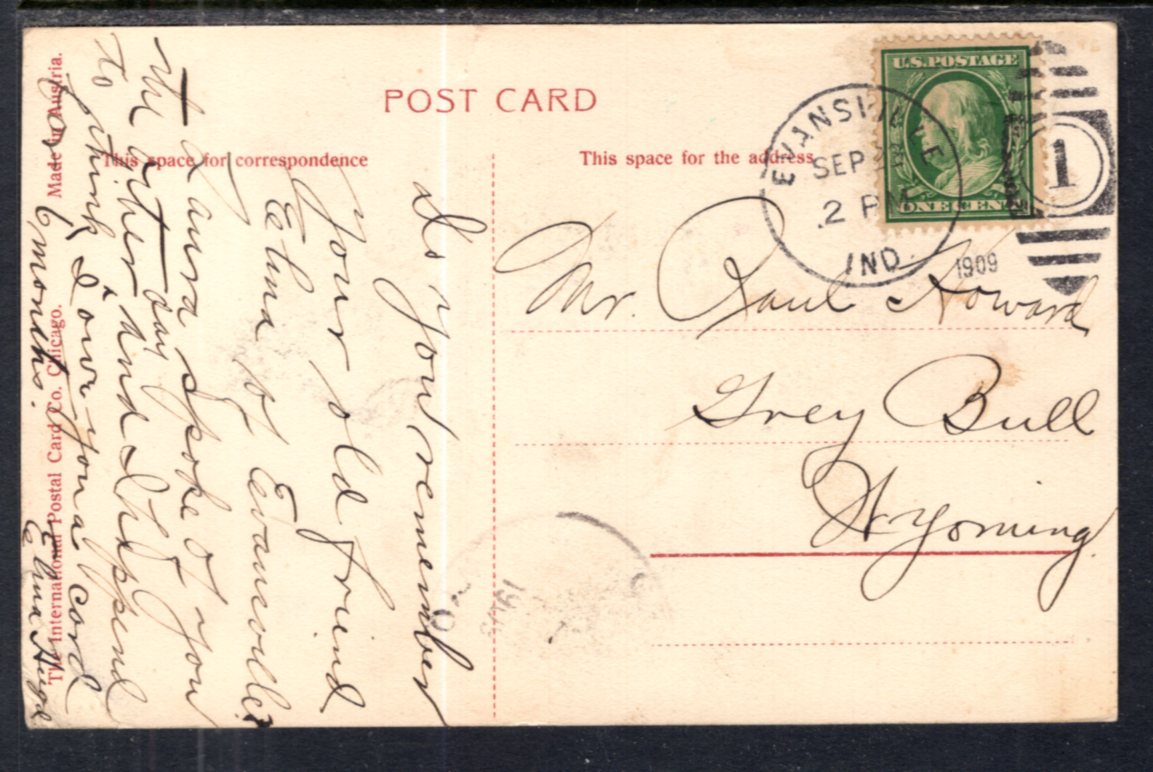 POST CARD
This space for correspondence
This space for the address
U.S. POSTAGE
ONE CENT
EVANSVILLE
SEP
2 PM
IND.
1909
1
Mr. Paul Howard
Grey Bull
Wyoming.
Do you remember
your old friend
Elma of Evansville?
Laura spoke of you
the other day and I happend
to think I owe you a card
for 6 months.
Elma
Made in Austria.
The International Postal Card Co. Chicago.